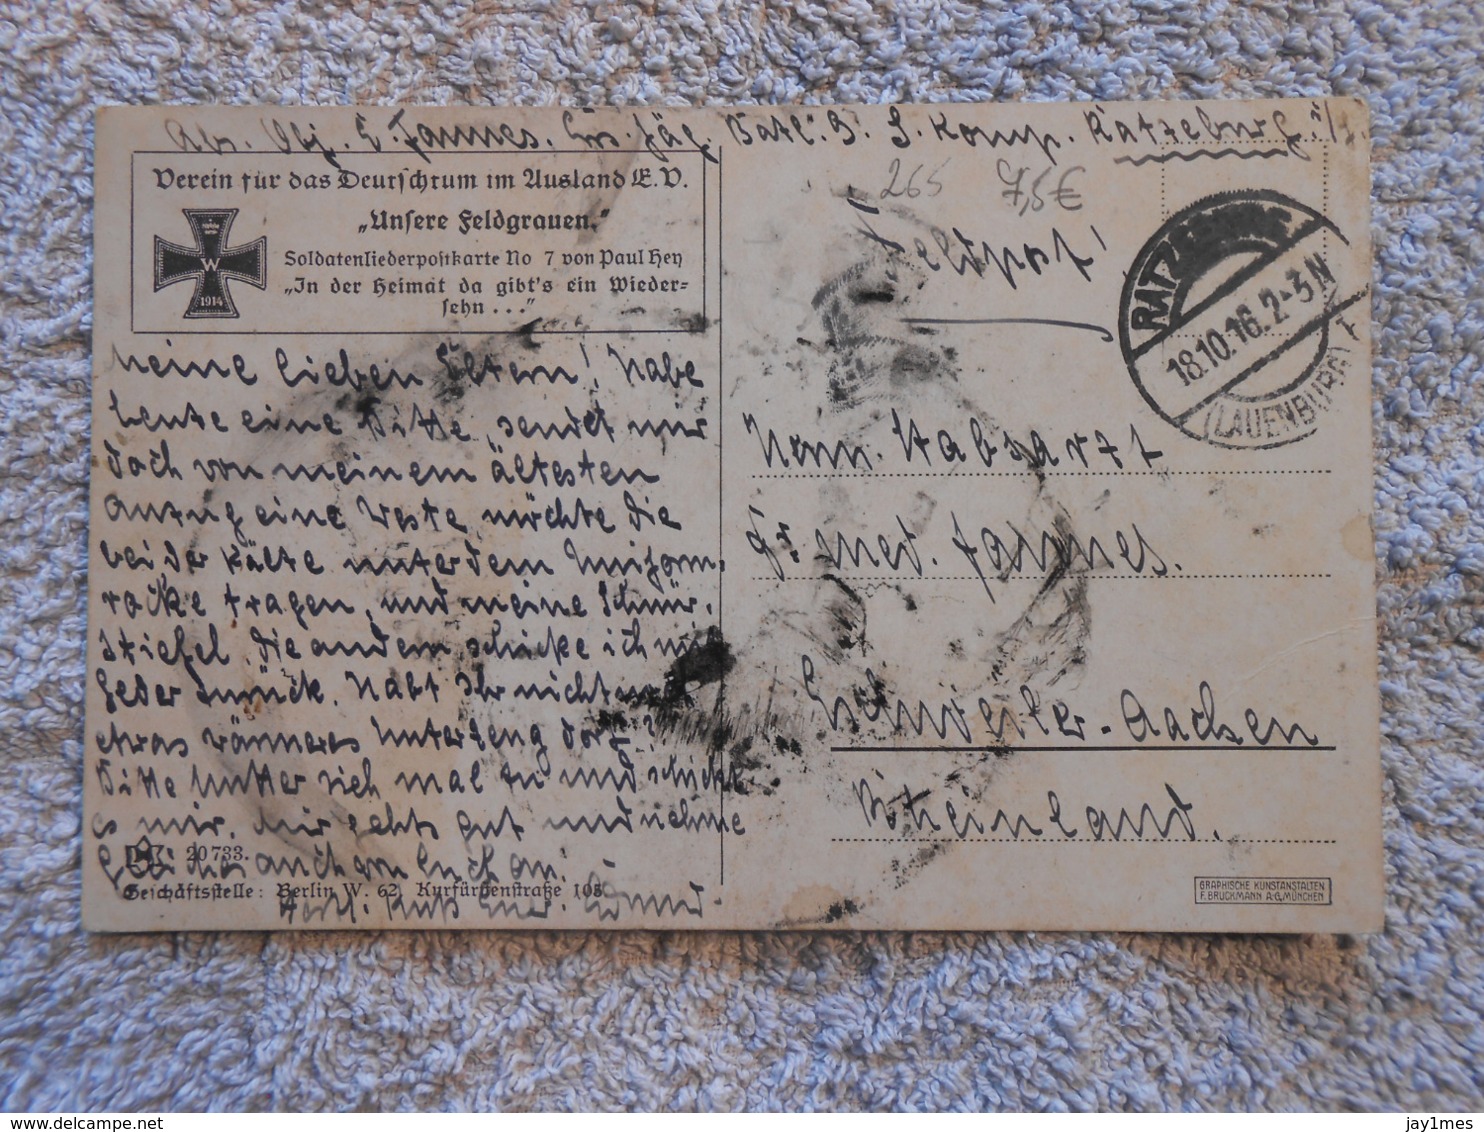 Abs. Obj. E. Jannes. Ers. Jäg. Batl. 9. 3. Komp. Ratzeburg i/L.
Verein für das Deutschtum im Ausland E.V.
„Unsere Feldgrauen.“
Soldatenliederpostkarte No 7 von Paul Hey
„In der Heimat da gibt's ein Wieder-
sehn . . .“
W
1914
265
7,5€
Feldpost!
RATZEBURG
18.10.16. 2-3 N
(LAUENBURG)
Meine lieben Eltern! Habe
heute eine Bitte, sendet mir
doch von meinem ältesten
Anzug eine Weste, möchte die
bei der Kälte unter dem Uniform-
rocke tragen, und meine Schnür-
stiefel, die andern schicke ich mit
zurück. Habt Ihr nicht
etwas wärmeres Unterzeug dort?
Bitte Mutter sieh mal zu und schickt
es mir. Mir gehts gut und nehme
auch von Euch an.
Herzl. Kuß Euer Edmund.
Herrn Stabsarzt
Dr. med. Jannes.
Eschweiler-Aachen
Rheinland.
20733.
Geschäftsstelle: Berlin W. 62, Kurfürstenstraße 105
GRAPHISCHE KUNSTANSTALTEN
F. BRUCKMANN A.G. MÜNCHEN
delcampe.net
jay1mes